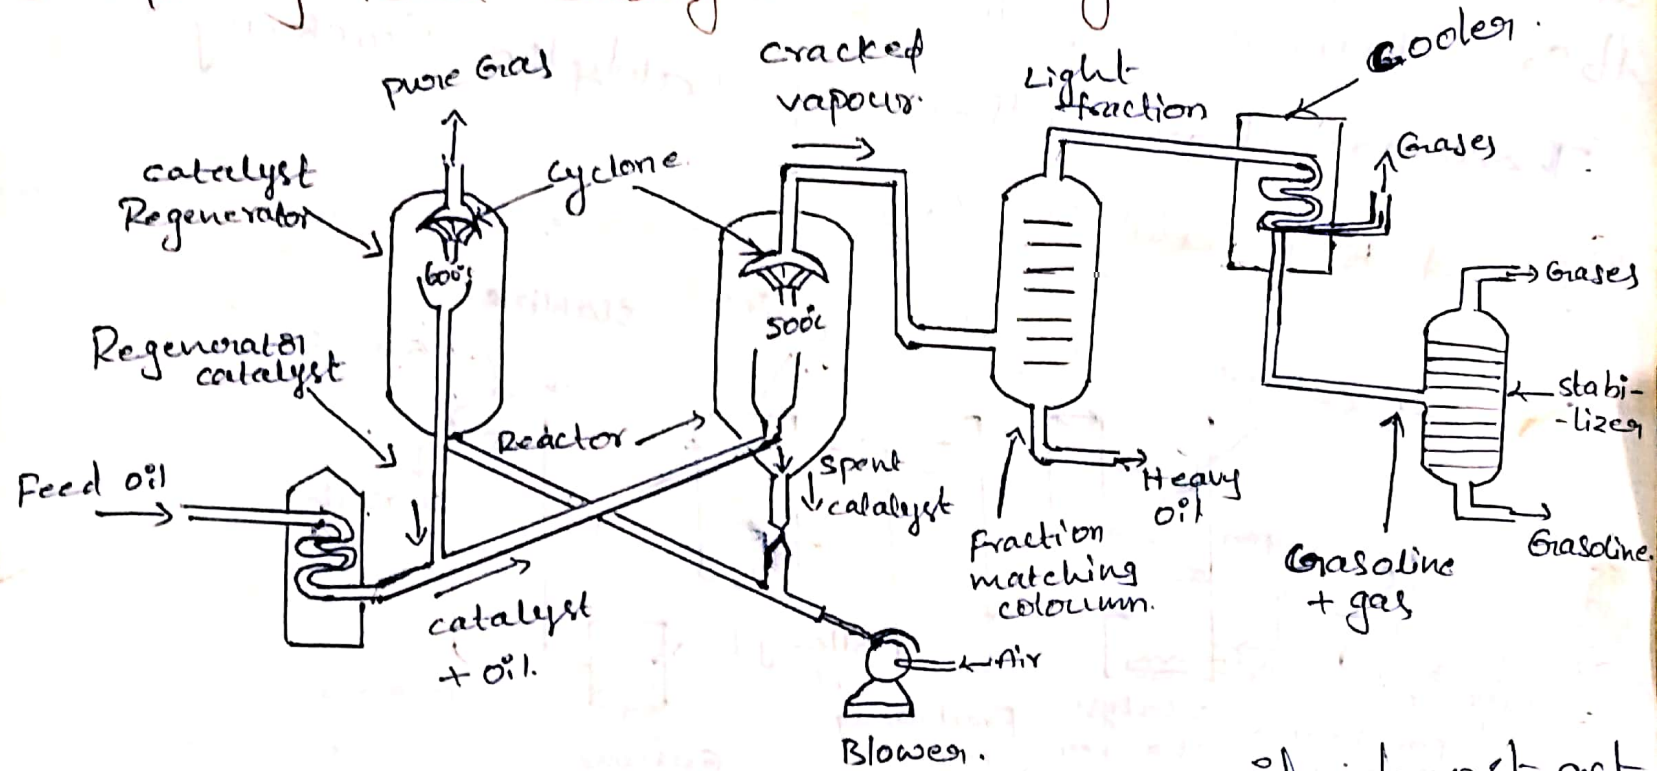 Pure Gas
Cracked
vapour.
Light
fraction
Cooler.
Gases
Catalyst
Regenerator
Cyclone
600°c
500°c
Gases
Regenerator
catalyst
Reactor
Stabi-
-lizer
Feed Oil
Spent
catalyst
Heavy
Oil
Fraction
matching
coloumn.
Gasoline
+ gas
Gasoline.
catalyst
+ Oil.
Air
Blower.